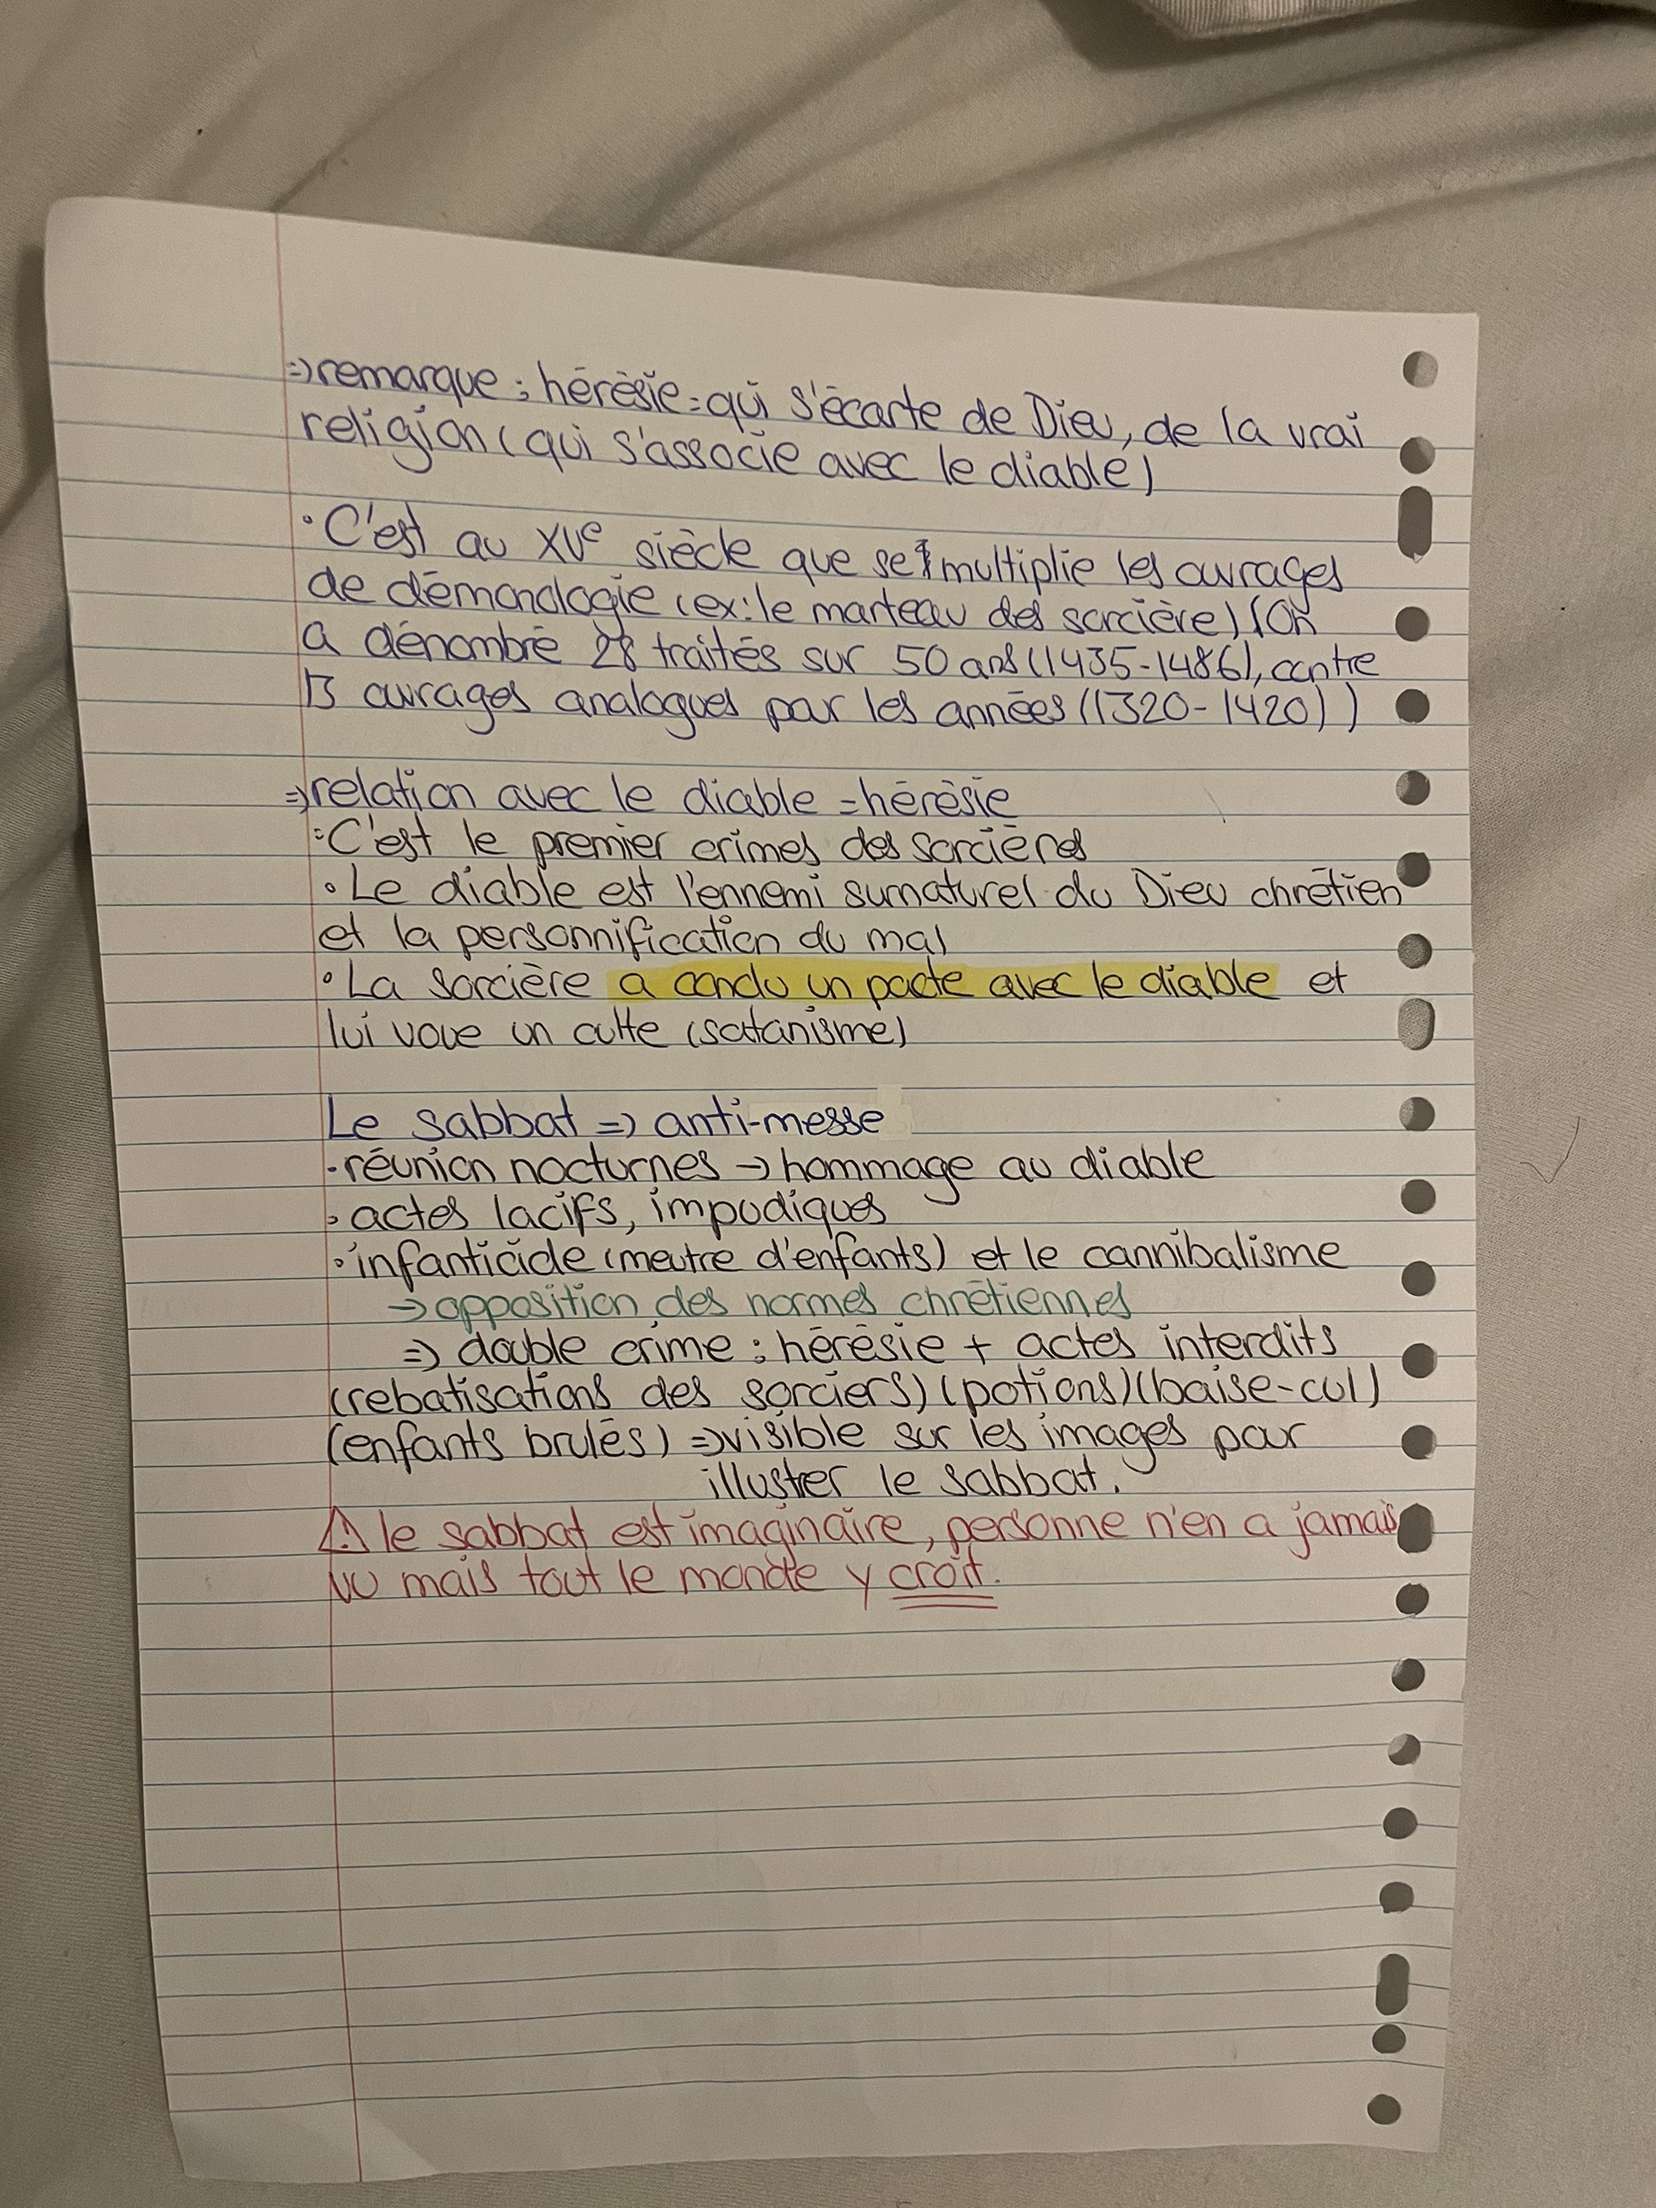 => remarque : hérèsie = qui s'écarte de Dieu, de la vrai
religion (qui s'associe avec le diable)
• C'est au XVe siècle que se multiplie les ouvrages
de démonologie (ex: le marteau des sorcière) (On
a dénombré 28 traités sur 50 ans (1435-1486), contre
13 ouvrages analogues par les années (1320-1420))
=> relation avec le diable = hérèsie
• C'est le premier crimes des sorcières
• Le diable est l'ennemi surnaturel du Dieu chrétien
et la personnification du mal
• La sorcière a conclu un pacte avec le diable et
lui voue un culte (satanisme)
Le sabbat => anti-messe
• réunion nocturnes -> hommage au diable
• actes lacifs, impudiques
• infanticide (meutre d'enfants) et le cannibalisme
-> opposition des normes chrétiennes
=> double crime : hérèsie + actes interdits
(rebatisations des sorciers) (potions) (baise-cul)
(enfants brulés) => visible sur les images par
illuster le sabbat.
⚠ le sabbat est imaginaire, personne n'en a jamais
vu mais tout le monde y croit.